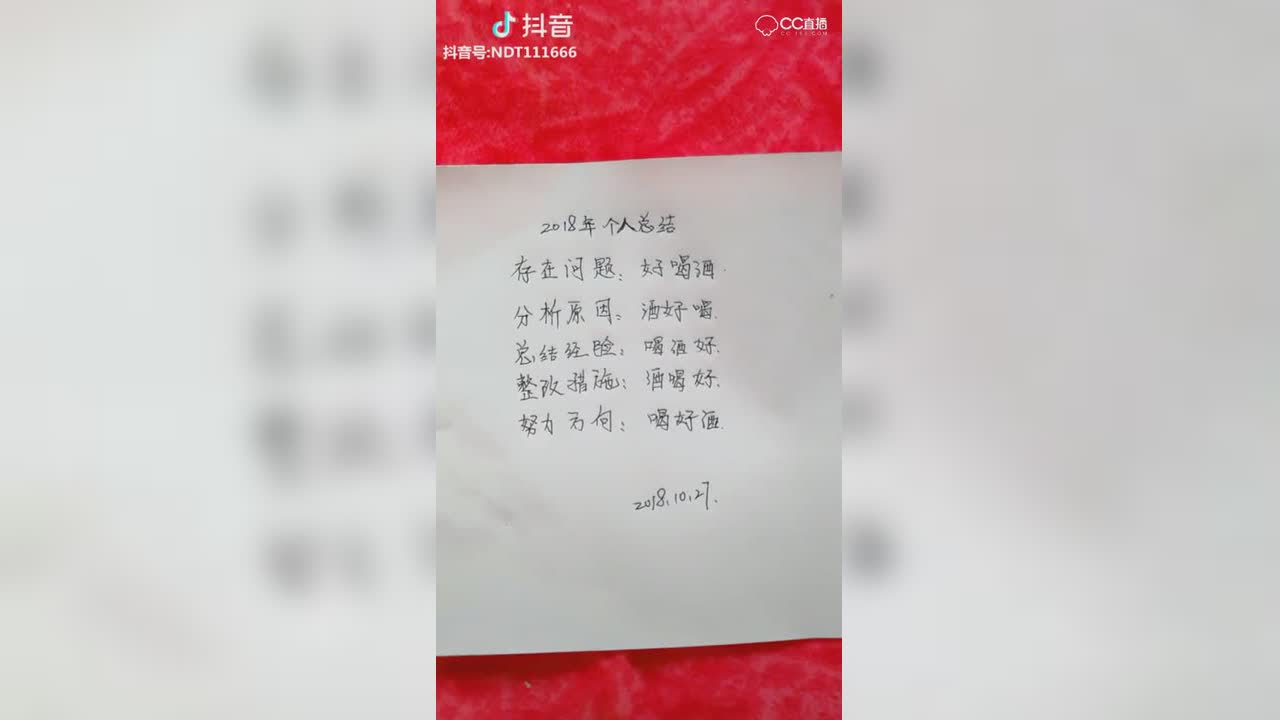 抖音
抖音号:NDT111666
CC直播
CC.163.COM
2018年个人总结
存在问题：好喝酒.
分析原因：酒好喝.
总结经验：喝酒好.
整改措施：酒喝好.
努力方向：喝好酒.
2018.10.27.